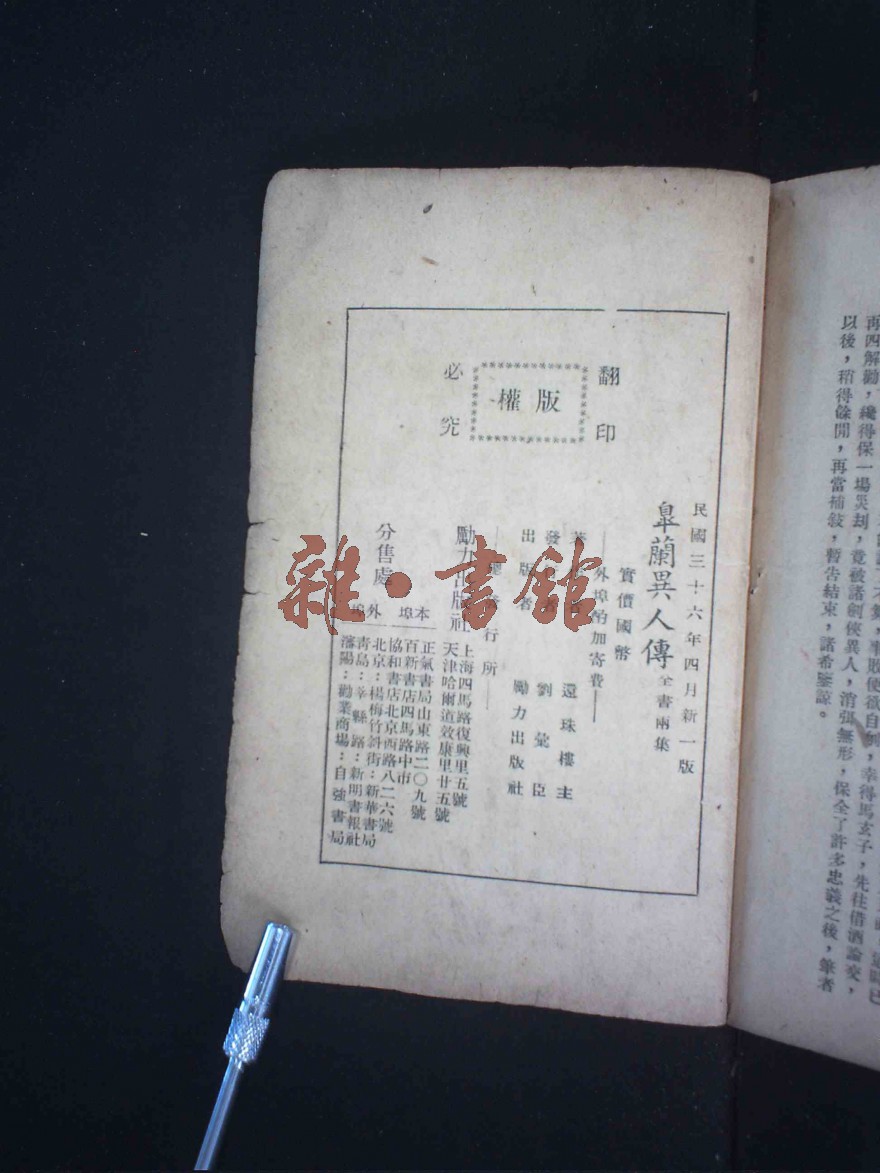 再四解勸，纔得保一場災劫，竟被諸劍俠異人，消弭無形，保全了許多忠義之後，筆者
以後，稍得餘閒，再當補敍，暫告結束，諸希鑒諒。
翻印
版權
必究
民國三十六年四月新一版
皐蘭異人傳全書兩集
實價國幣
外埠酌加寄費
還珠樓主
劉彙臣
出版者 勵力出版社
行所
勵力出版社
上海四馬路復興里五號
天津哈爾道效康里廿五號
分售處
本埠
正氣書局山東路二〇九號
百新書店四馬路中市
協和書店北京西路八二六號
外埠
北京：楊梅竹斜街：新華書局
青島：莘縣路：新明書報社
瀋陽：勸業商場：自強書局
雜·書館